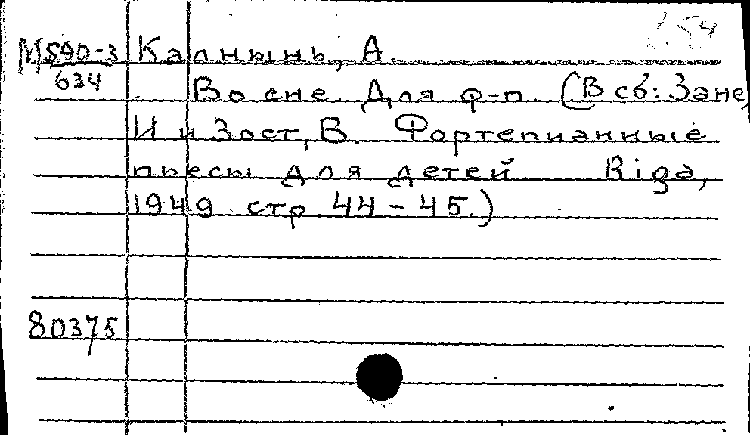 М590-3 Калнынь, А.
634
Во сне. Для ф-п. (В сб: Зане,
И и Зост, В. Фортепианные
пьесы для детей Riga,
1949 стр 44-45.)
80375